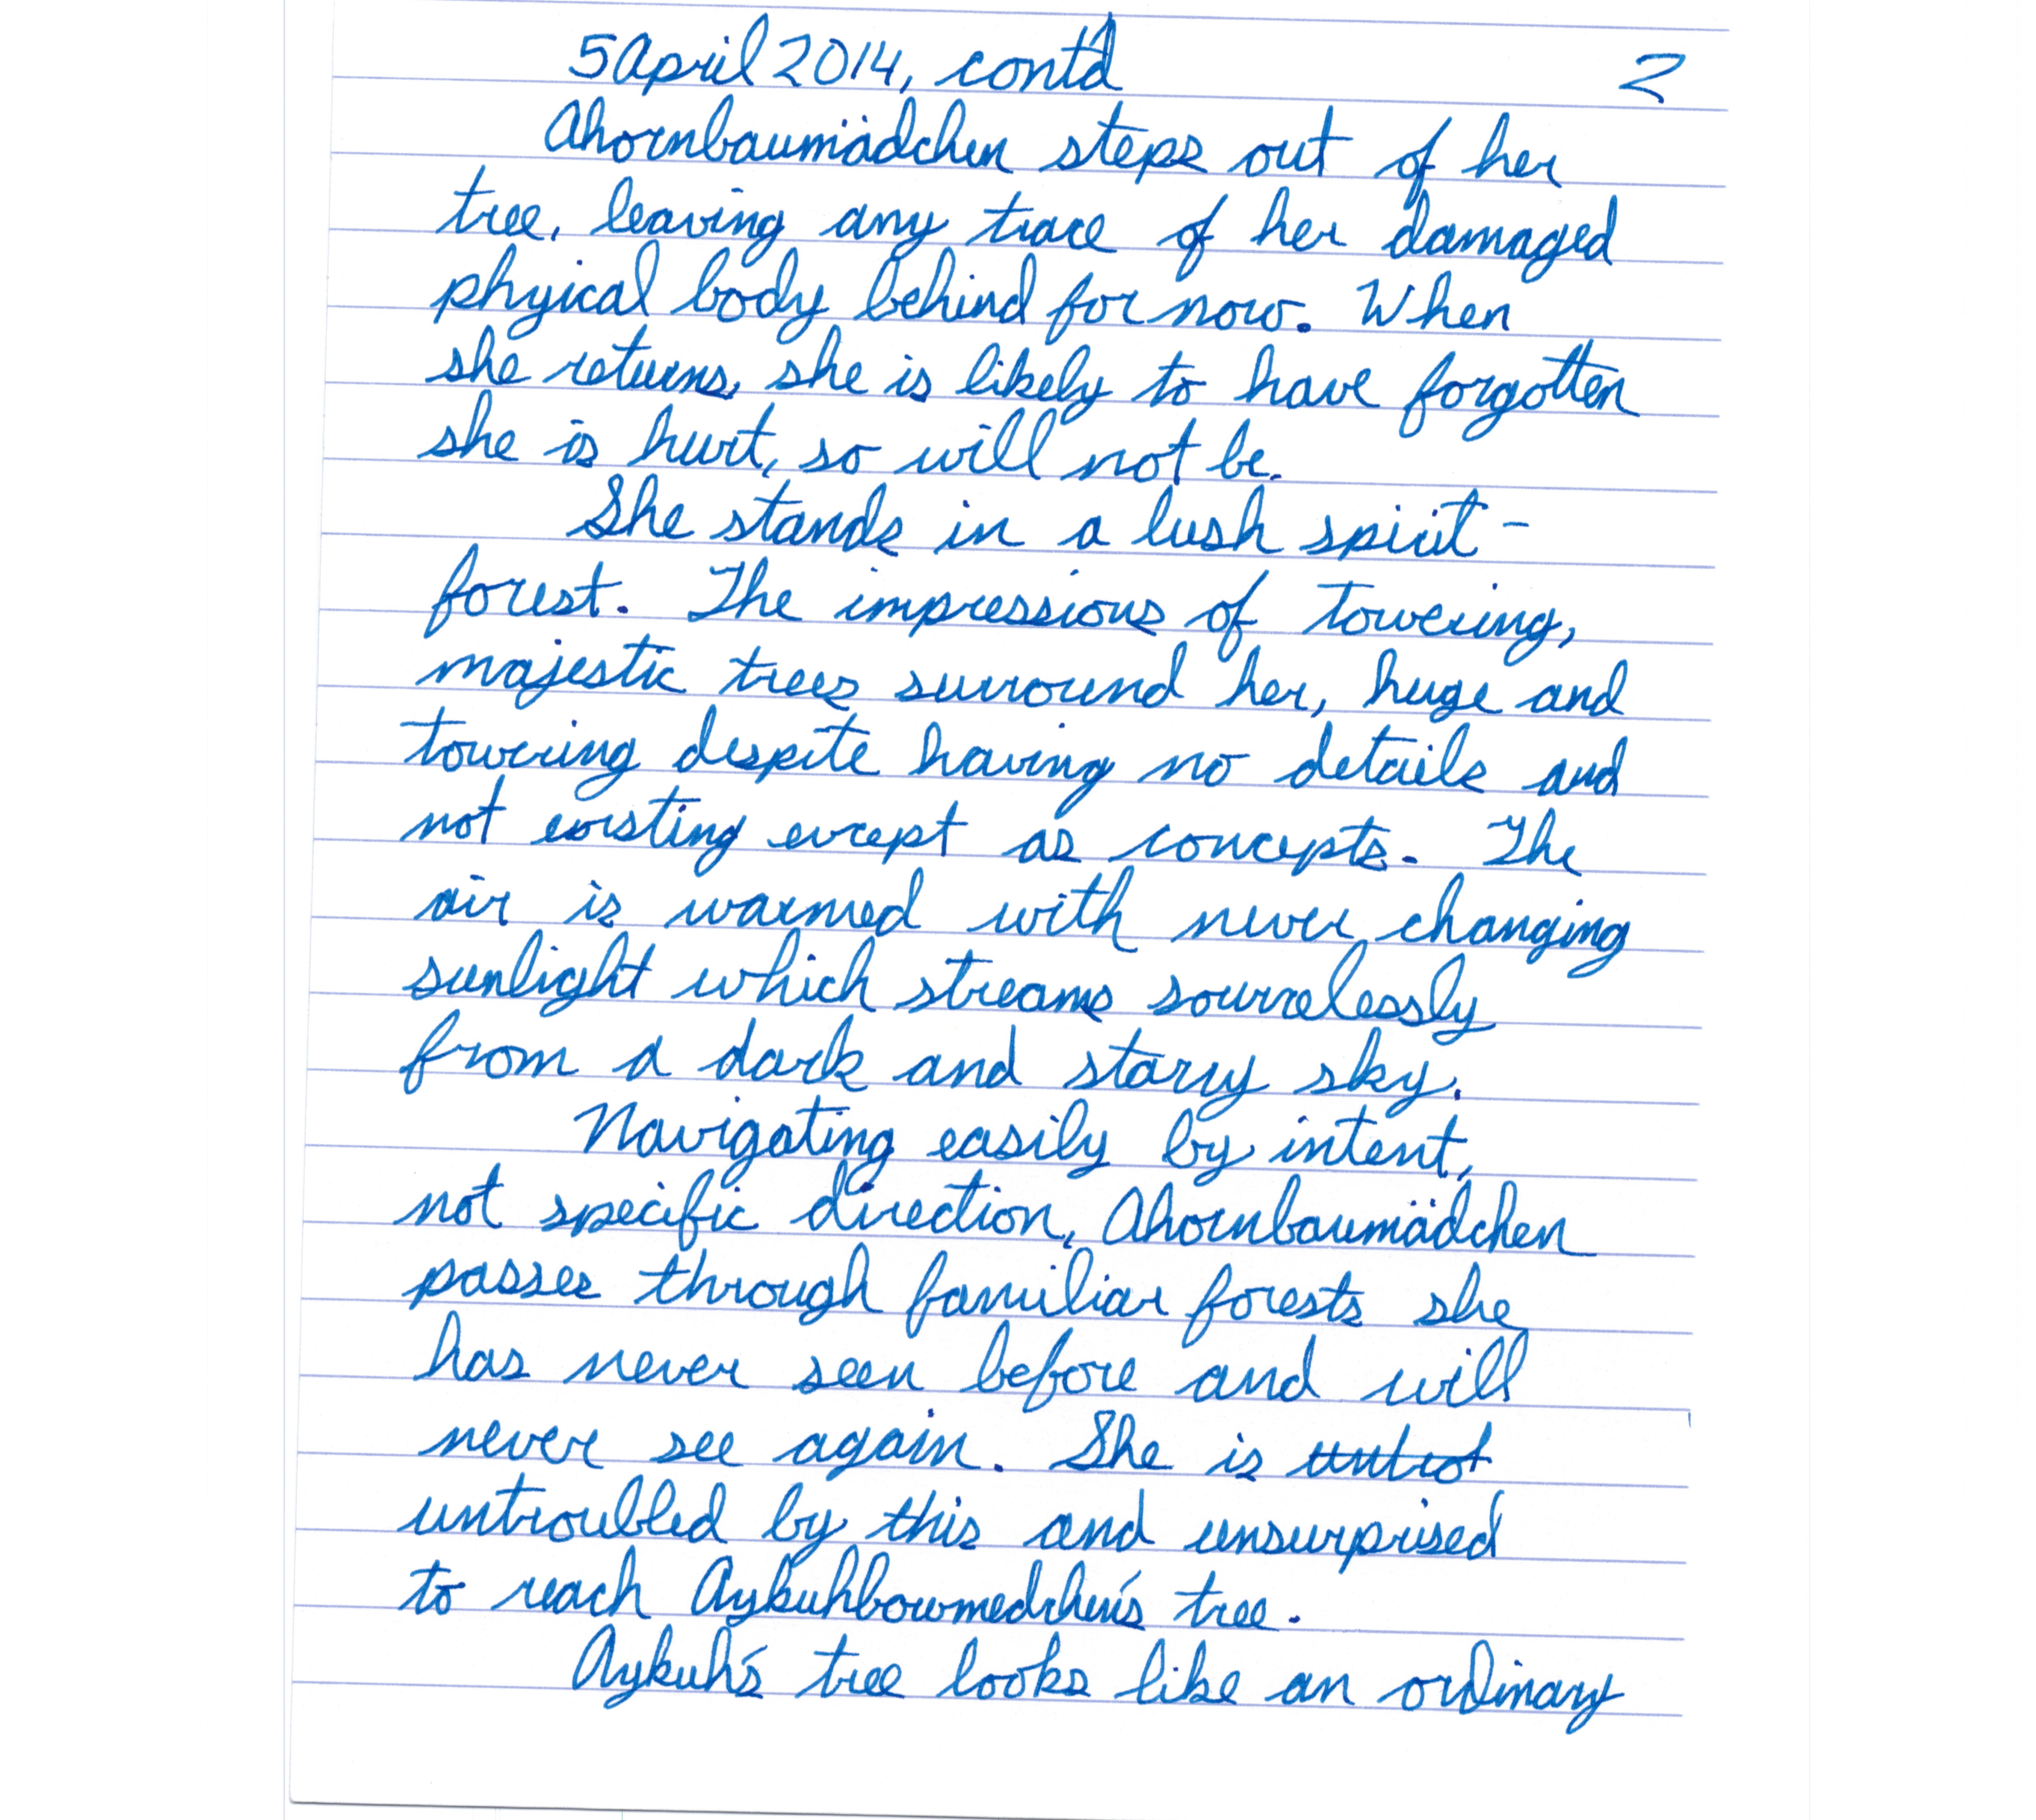 5 April 2014, cont'd 2
Ahornbaumädchen steps out of her
tree, leaving any trace of her damaged
phyical body behind for now. When
she returns, she is likely to have forgotten
she is hurt, so will not be.
She stands in a lush spirit-
forest. The impressions of towering,
majestic trees surround her, huge and
towering despite having no details and
not existing except as concepts. The
air is warmed with never changing
sunlight which streams sourcelessly
from a dark and starry sky.
Navigating easily by intent,
not specific direction, Ahornbaumädchen
passes through familiar forests she
has never seen before and will
never see again. She is untrot
untroubled by this and unsurprised
to reach Aykuhbowmedchen's tree.
Aykuh's tree looks like an ordinary